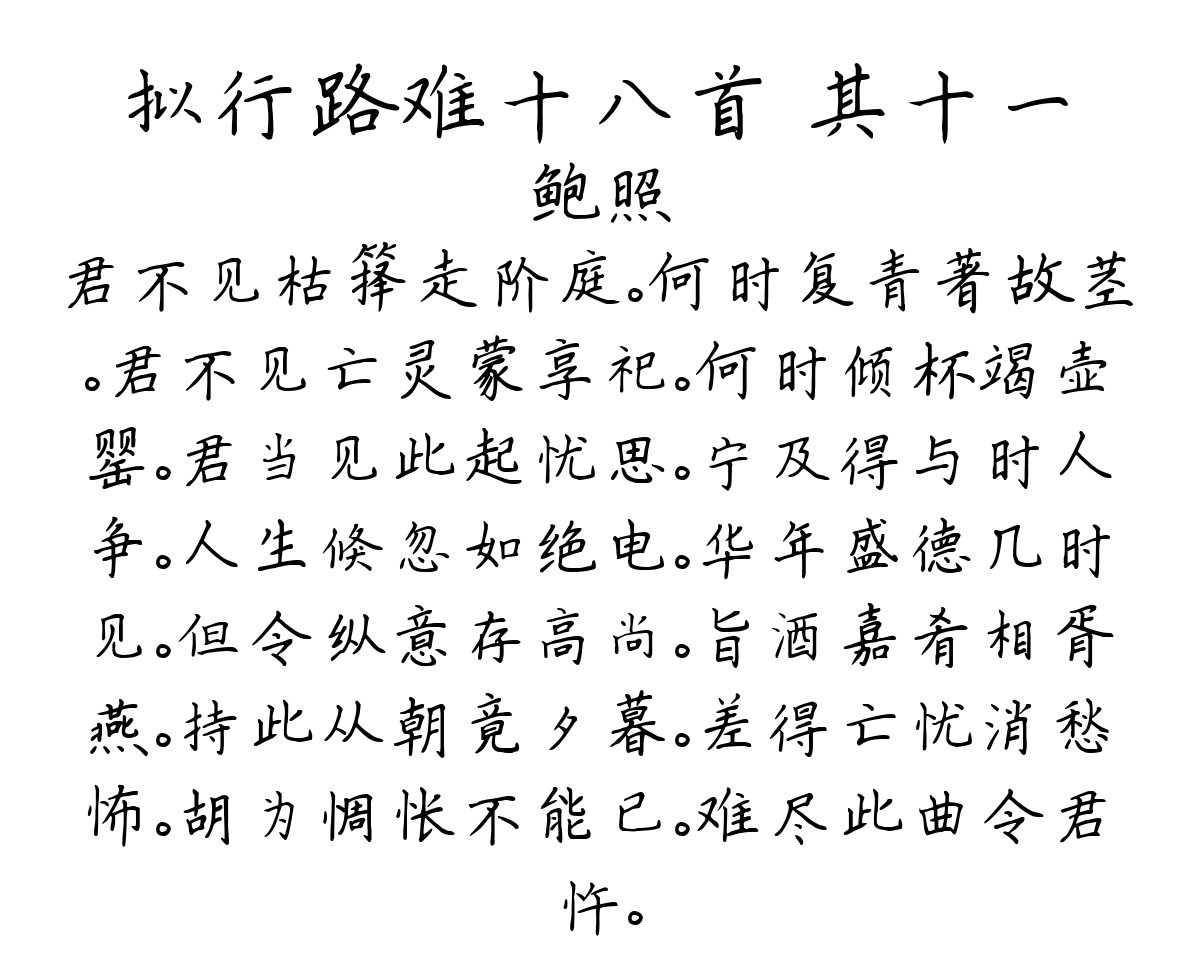 拟行路难十八首 其十一
鲍照
君不见枯箨走阶庭。何时复青著故茎
。君不见亡灵蒙享祀。何时倾杯竭壶
罂。君当见此起忧思。宁及得与时人
争。人生倏忽如绝电。华年盛德几时
见。但令纵意存高尚。旨酒嘉肴相胥
燕。持此从朝竟夕暮。差得亡忧消愁
怖。胡为惆怅不能已。难尽此曲令君
忤。